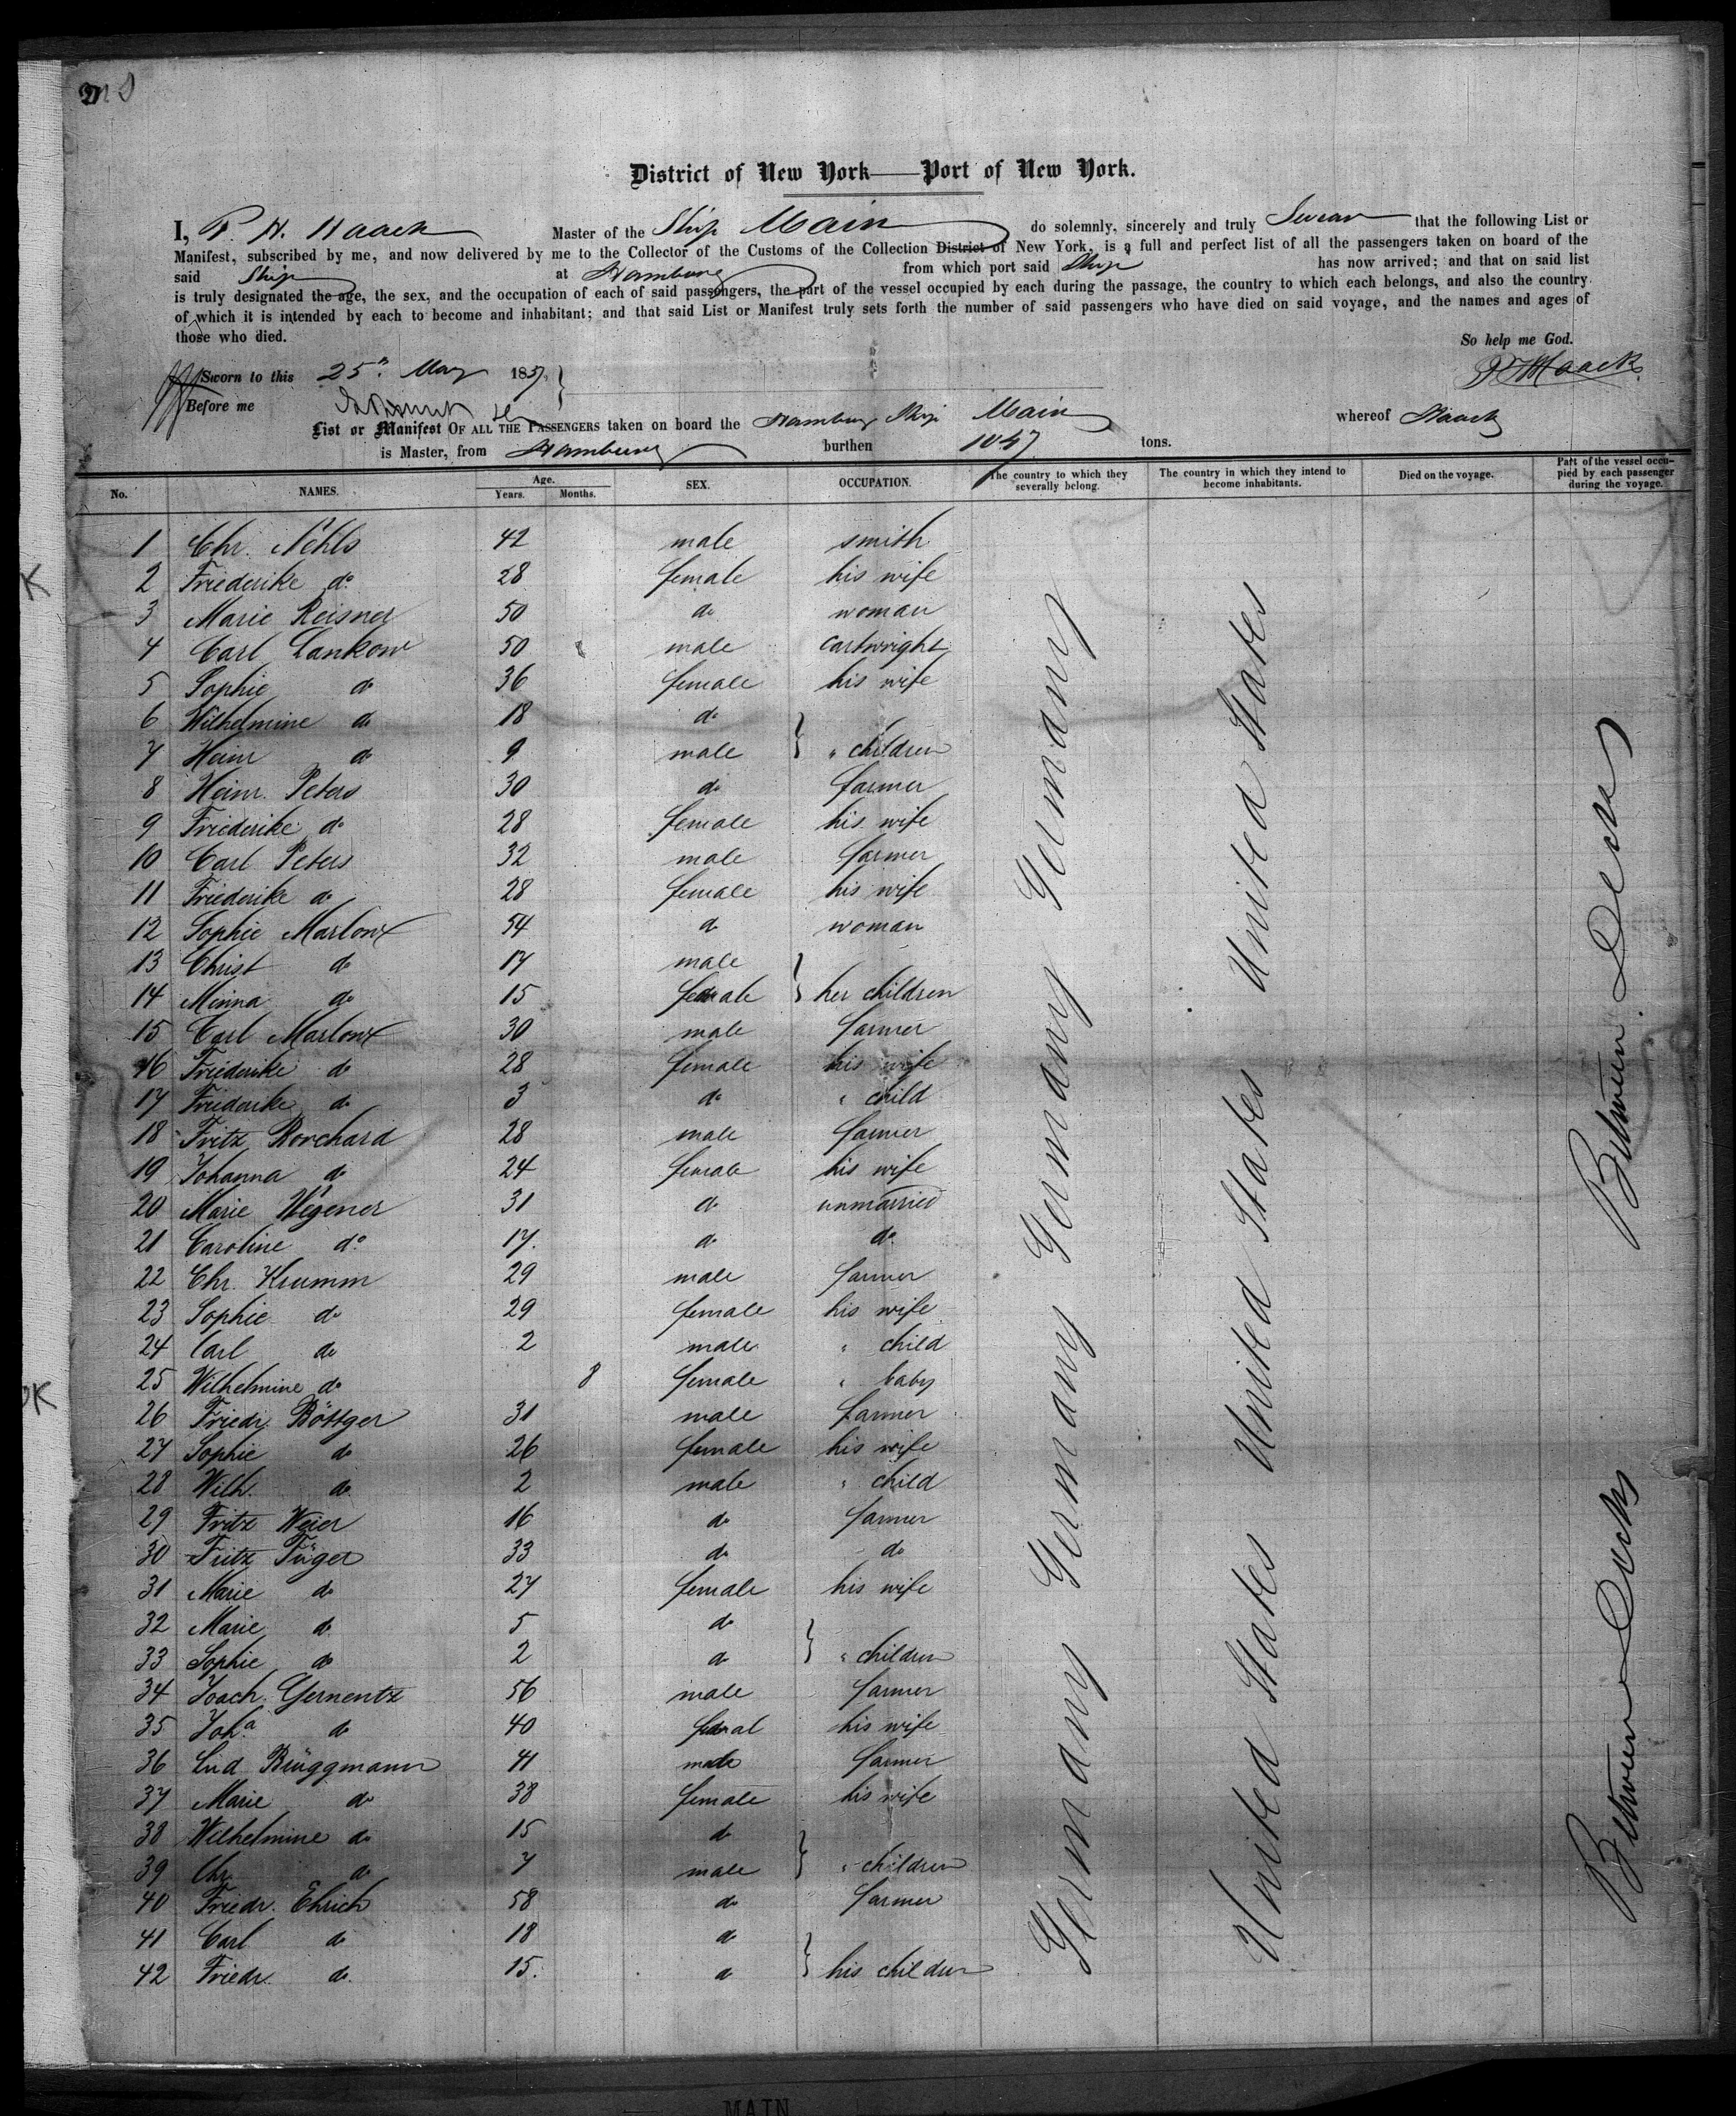 District of New York—Port of New York.
I, P. H. Haack Master of the Ship Main do solemnly, sincerely and truly Swear that the following List or
Manifest, subscribed by me, and now delivered by me to the Collector of the Customs of the Collection District of New York, is a full and perfect list of all the passengers taken on board of the
said Ship at Hamburg from which port said Ship has now arrived; and that on said list
is truly designated the age, the sex, and the occupation of each of said passengers, the part of the vessel occupied by each during the passage, the country to which each belongs, and also the country
of which it is intended by each to become and inhabitant; and that said List or Manifest truly sets forth the number of said passengers who have died on said voyage, and the names and ages of
those who died.
So help me God.
Sworn to this 25th May 1857
P H Haack
Before me
List or Manifest OF ALL THE PASSENGERS taken on board the Hamburg Ship Main whereof Haack
is Master, from Hamburg burthen 1047 tons.
No. NAMES. Age. Years. Months. SEX. OCCUPATION. The country to which they severally belong. The country in which they intend to become inhabitants. Died on the voyage. Part of the vessel occupied by each passenger during the voyage.
1 Chr. Nehls 42 male smith
2 Friederike do 28 female his wife
3 Marie Reisner 50 do woman
4 Carl Lankow 50 male cartwright
5 Sophie do 36 female his wife
6 Wilhelmine do 18 do
7 Heinr do 9 male " children
8 Heinr. Peters 30 do farmer
9 Friederike do 28 female his wife
10 Carl Peters 32 male farmer
11 Friederike do 28 female his wife
12 Sophie Marlow 54 do woman
13 Christ do 17 male
14 Minna do 15 female her children
15 Carl Marlow 30 male farmer
16 Friederike do 28 female his wife
17 Friederike do 3 do " child
18 Fritz Borchard 28 male farmer
19 Johanna do 24 female his wife
20 Marie Wegener 31 do unmarried
21 Caroline do 17. do do
22 Chr. Krumm 29 male farmer
23 Sophie do 29 female his wife
24 Carl do 2 male " child
25 Wilhelmine do 8 female " baby
26 Friedr. Böttger 31 male farmer
27 Sophie do 26 female his wife
28 Wilh. do 2 male " child
29 Fritz Weier 16 do farmer
30 Fritz Füger 33 do do
31 Marie do 27 female his wife
32 Marie do 5 do
33 Sophie do 2 do " children
34 Joach. Gernentz 56 male farmer
35 Joha do 40 femal his wife
36 Lud Brüggmann 41 male farmer
37 Marie do 38 female his wife
38 Wilhelmine do 15 do
39 Chr do 7 male " children
40 Friedr. Ehrich 58 do farmer
41 Carl do 18 do
42 Friedr. do 15. do his children
Germany Germany Germany Germany
United States United States United States
Between Decks Between Decks
MAIN